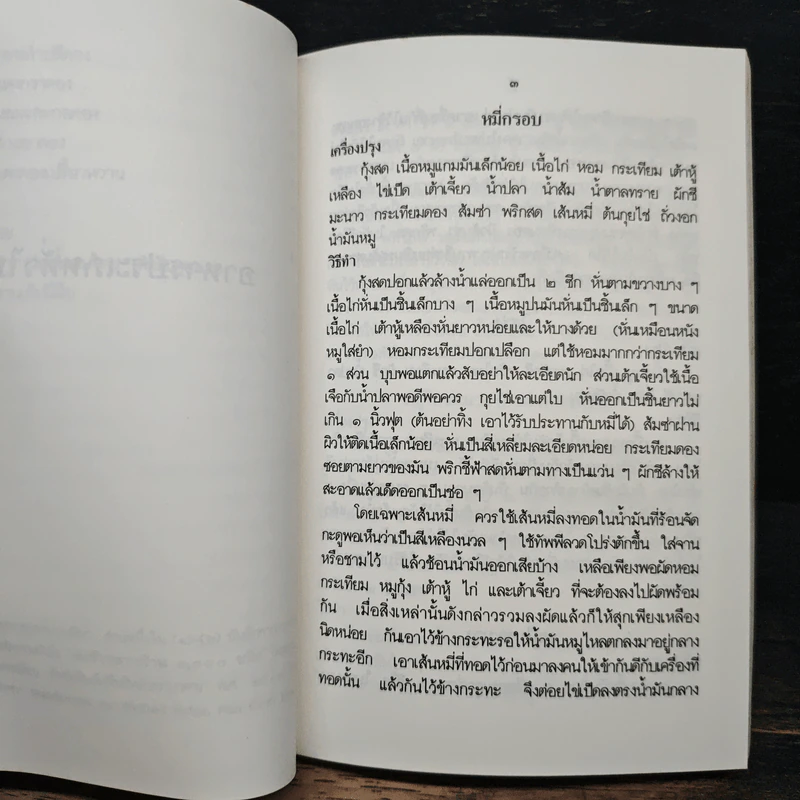 ๓
หมี่กรอบ
เครื่องปรุง
กุ้งสด เนื้อหมูแกมมันเล็กน้อย เนื้อไก่ หอม กระเทียม เต้าหู้
เหลือง ไข่เป็ด เต้าเจี้ยว น้ำปลา น้ำส้ม น้ำตาลทราย ผักชี
มะนาว กระเทียมดอง ส้มซ่า พริกสด เส้นหมี่ ต้นกุยไช่ ถั่วงอก
น้ำมันหมู
วิธีทำ
กุ้งสดปอกแล้วล้างน้ำแล่ออกเป็น ๒ ซีก หั่นตามขวางบาง ๆ
เนื้อไก่หั่นเป็นชิ้นเล็กบาง ๆ เนื้อหมูปนมันหั่นเป็นชิ้นเล็ก ๆ ขนาด
เนื้อไก่ เต้าหู้เหลืองหั่นยาวหน่อยและให้บางด้วย (หั่นเหมือนหนัง
หมูใส่ยำ) หอมกระเทียมปอกเปลือก แต่ใช้หอมมากกว่ากระเทียม
๑ ส่วน บุบพอแตกแล้วสับอย่าให้ละเอียดนัก ส่วนเต้าเจี้ยวใช้เนื้อ
เจือกับน้ำปลาพอดีพอควร กุยไช่เอาแต่ใบ หั่นออกเป็นชิ้นยาวไม่
เกิน ๑ นิ้วฟุต (ต้นอย่าทิ้ง เอาไว้รับประทานกับหมี่ได้) ส้มซ่าฝาน
ผิวให้ติดเนื้อเล็กน้อย หั่นเป็นสี่เหลี่ยมละเอียดหน่อย กระเทียมดอง
ซอยตามยาวของมัน พริกชี้ฟ้าสดหั่นตามทางเป็นแว่น ๆ ผักชีล้างให้
สะอาดแล้วเด็ดออกเป็นช่อ ๆ
โดยเฉพาะเส้นหมี่ ควรใช้เส้นหมี่ลงทอดในน้ำมันที่ร้อนจัด
กะดูพอเห็นว่าเป็นสีเหลืองนวล ๆ ใช้ทัพพีลวดโปร่งตักขึ้น ใส่จาน
หรือชามไว้ แล้วช้อนน้ำมันออกเสียบ้าง เหลือเพียงพอผัดหอม
กระเทียม หมูกุ้ง เต้าหู้ ไก่ และเต้าเจี้ยว ที่จะต้องลงไปผัดพร้อม
กัน เมื่อสิ่งเหล่านั้นดังกล่าวรวมลงผัดแล้วก็ให้สุกเพียงเหลือง
นิดหน่อย กันเอาไว้ข้างกระทะรอให้น้ำมันหมูไหลตกลงมาอยู่กลาง
กระทะอีก เอาเส้นหมี่ที่ทอดไว้ก่อนมาลงคนให้เข้ากันดีกับเครื่องที่
ทอดนั้น แล้วกันไว้ข้างกระทะ จึงต่อยไข่เป็ดลงตรงน้ำมันกลาง